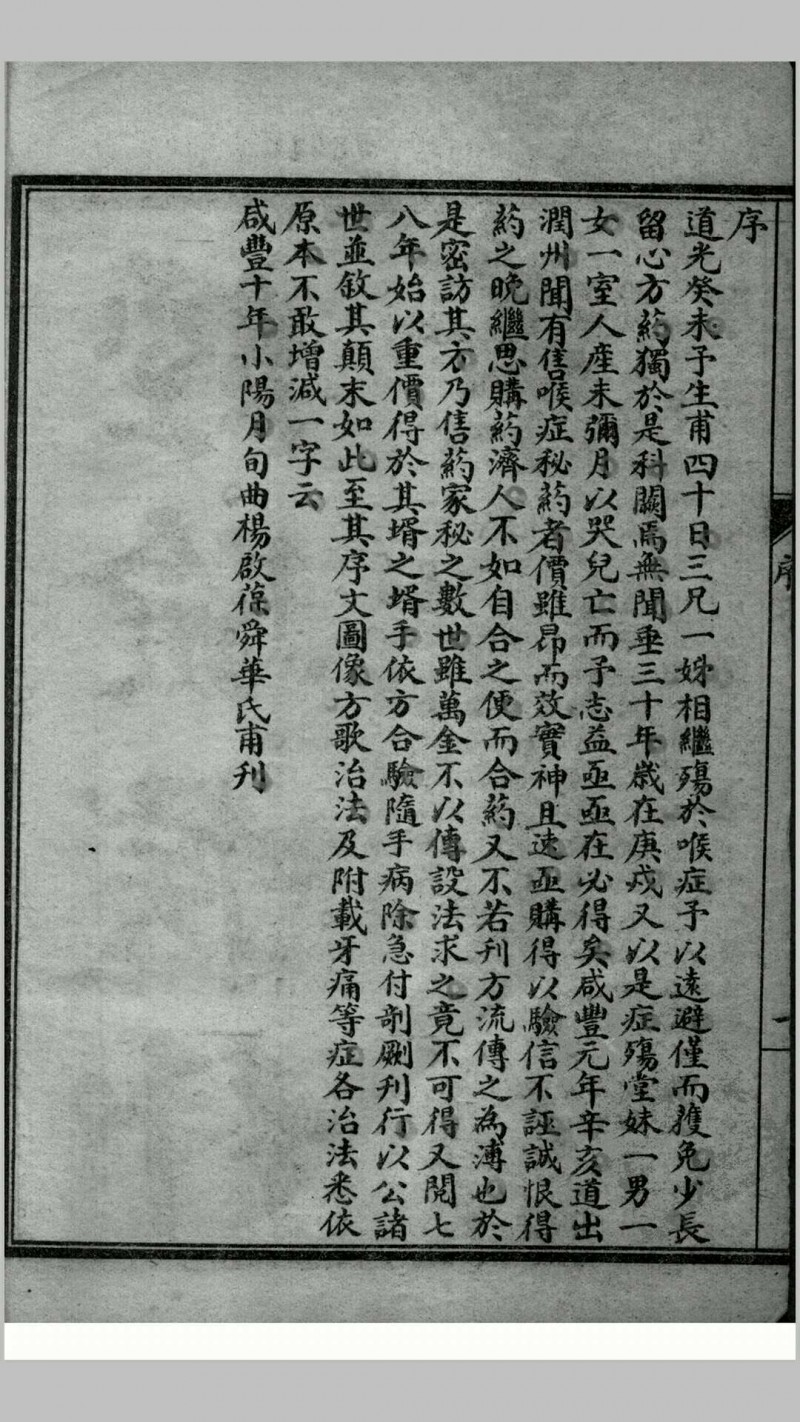 序
道光癸未予生甫四十日三兄一姊相繼殤於喉症予以遠避僅而獲免少長
留心方葯獨於是科闕焉無聞垂三十年歲在庚戍又以是症殤堂妹一男一
女一室人產未彌月以哭兒亡而予志益亟亟在必得矣咸豐元年辛亥道出
潤州聞有售喉症秘葯者價雖昂而效實神且速亟購得以驗信不誣誠恨得
葯之晚繼思購葯濟人不如自合之便而合葯又不若刋方流傳之為溥也於
是密訪其方乃售葯家秘之數世雖萬金不以傳設法求之竟不可得又閱七
八年始以重價得於其壻之壻手依方合驗隨手病除急付剞劂刋行以公諸
世並敘其顛末如此至其序文圖像方歌治法及附載牙痛等症各治法悉依
原本不敢增減一字云
咸豐十年小陽月句曲楊啟葆舜華氏甫刋
序
一